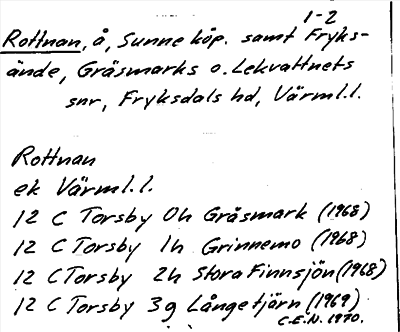 1-2
Rottnan, å, Sunne köp. samt Fryks-
ände, Gräsmarks o. Lekvattnets
snr, Fryksdals hd, Värml.l.
Rottnan
ek Värml.l.
12 C Torsby 0h Gräsmark (1968)
12 C Torsby 1h Grinnemo (1968)
12 C Torsby 2h Stora Finnsjön (1968)
12 C Torsby 3g Långetjärn (1969)
C.E.N. 1970.